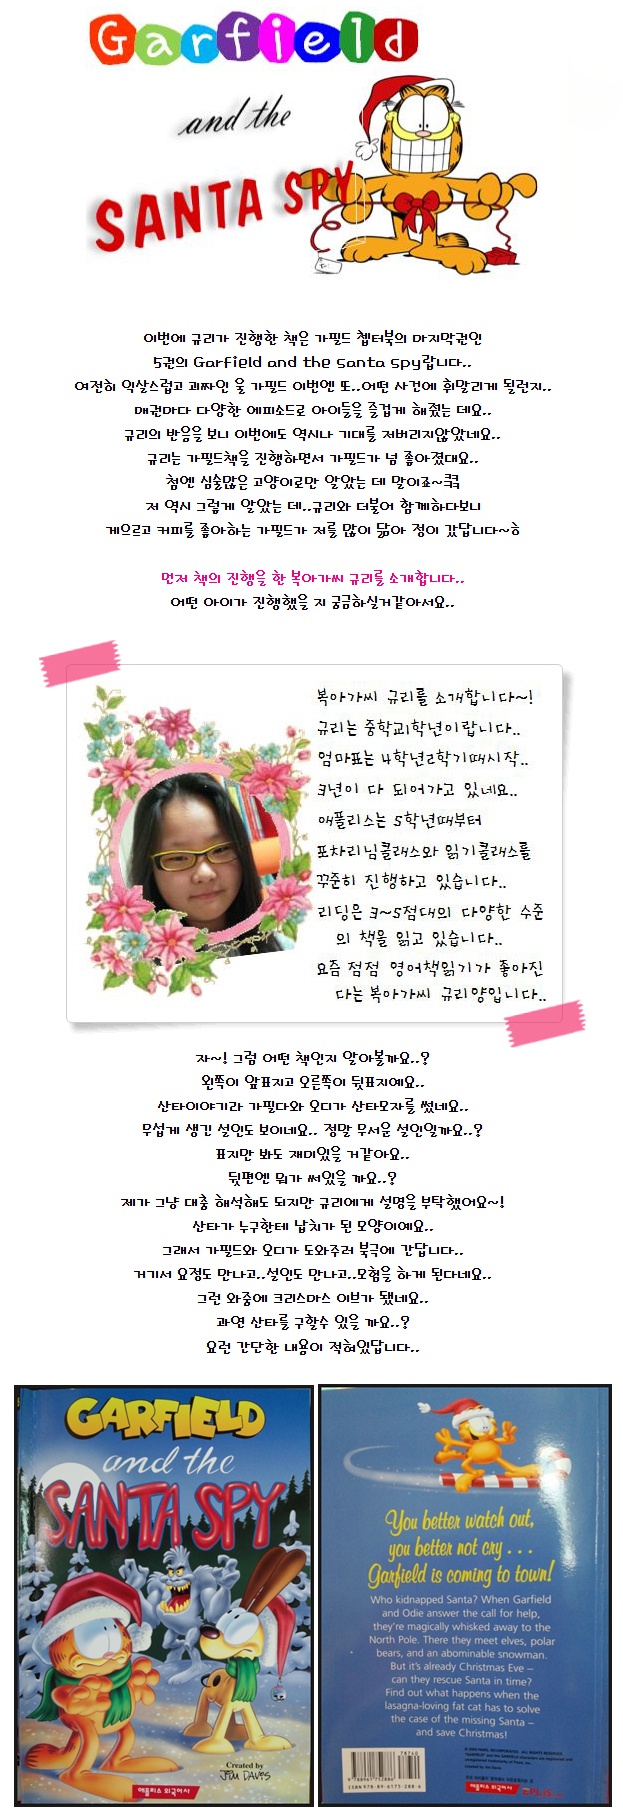 Garfield
and the
SANTA SPY
이번에 규리가 진행한 책은 가필드 챕터북의 마지막권인
5권의 Garfield and the santa spy랍니다..
여전히 익살스럽고 괴짜인 울 가필드 이번엔 또..어떤 사건에 휘말리게 될런지..
매권마다 다양한 에피소드로 아이들을 즐겁게 해줬는 데요..
규리의 반응을 보니 이번에도 역시나 기대를 저버리지않았네요..
규리는 가필드책을 진행하면서 가필드가 넘 좋아졌대요..
첨엔 심술많은 고양이로만 알았는 데 말이죠~큭큭
저 역시 그렇게 알았는 데..규리와 더불어 함께하다보니
게으르고 커피를 좋아하는 가필드가 저를 많이 닮아 정이 갔답니다~ㅎ
먼저 책의 진행을 한 복아가씨 규리를 소개합니다..
어떤 아이가 진행했을 지 궁금하실거같아서요..
복아가씨 규리를 소개합니다~!
규리는 중학교1학년이랍니다..
엄마표는 4학년2학기때시작..
3년이 다 되어가고 있네요..
애플리스는 5학년때부터
포차리님클래스와 읽기클래스를
꾸준히 진행하고 있습니다..
리딩은 3~5점대의 다양한 수준
의 책을 읽고 있습니다..
요즘 점점 영어책읽기가 좋아진
다는 복아가씨 규리양입니다..
자~! 그럼 어떤 책인지 알아볼까요..?
왼쪽이 앞표지고 오른쪽이 뒷표지예요..
산타이야기라 가필다와 오디가 산타모자를 썼네요..
무섭게 생긴 설인도 보이네요.. 정말 무서운 설인일까요..?
표지만 봐도 재미있을 거같아요..
뒷편엔 뭐가 써있을 까요..?
제가 그냥 대충 해석해도 되지만 규리에게 설명을 부탁했어요~!
산타가 누구한테 납치가 된 모양이예요..
그래서 가필드와 오디가 도와주러 북극에 간답니다..
거기서 요정도 만나고..설인도 만나고..모험을 하게 된다네요..
그런 와중에 크리스마스 이브가 됐네요..
과연 산타를 구할수 있을 까요..?
요런 간단한 내용이 적혀있답니다..
GARFIELD
and the
SANTA SPY
Created by
JIM DAVIS
애플리스 외국어사
You better watch out,
you better not cry . . .
Garfield is coming to town!
Who kidnapped Santa? When Garfield
and Odie answer the call for help,
they're magically whisked away to the
North Pole. There they meet elves, polar
bears, and an abominable snowman.
But it's already Christmas Eve –
can they rescue Santa in time?
Find out what happens when the
lasagna-loving fat cat has to solve
the case of the missing Santa –
and save Christmas!
애플리스 외국어사